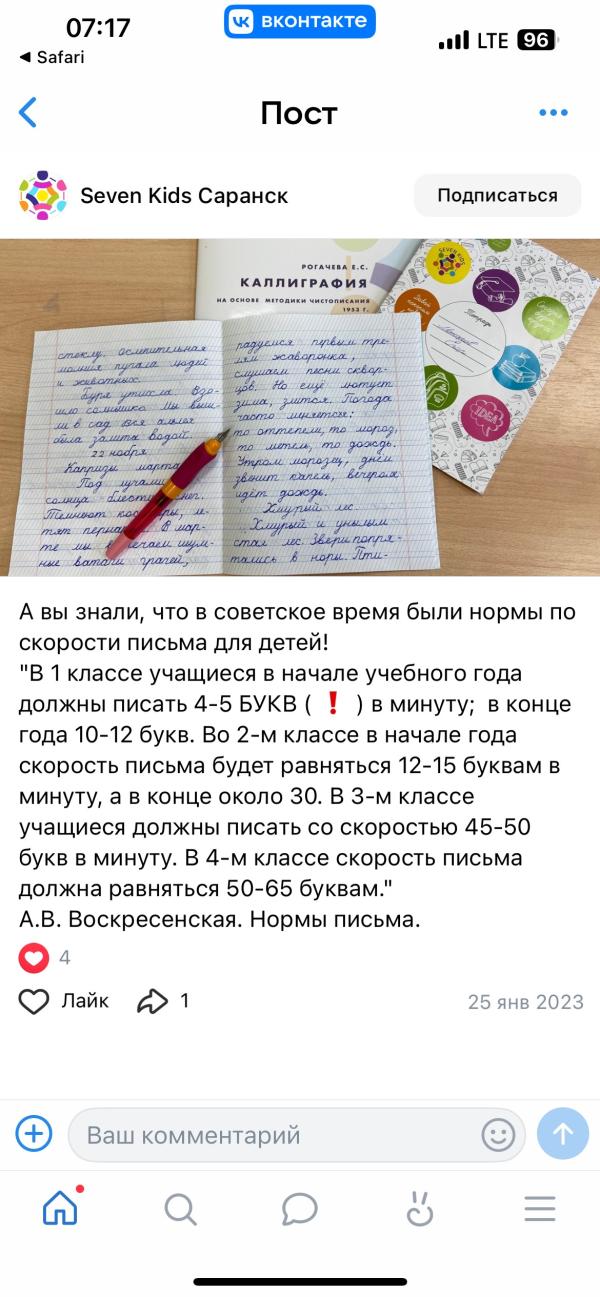 07:17
вконтакте
LTE 96
Safari
Пост
Seven Kids Саранск
Подписаться
РОГАЧЕВА Е.С.
КАЛЛИГРАФИЯ
НА ОСНОВЕ МЕТОДИКИ ЧИСТОПИСАНИЯ
1953 Г.
SEVEN KIDS
Тетрадь
IDEA
стеклу. Ослепительная
молния пугала людей
и животных.
Буря утихла. Взо-
шло солнышко. Мы выш-
ли в сад. Вся аллея
была залита водой.
22 ноября
Капризы марта
Под лучами
солнца блестит снег.
Темнеют ле-
тят В мар-
те мы встречаем шум-
ные ватаги грачей,
радуемся первым тре-
лям жаворонка,
слушаем песни сквор-
цов. Но ещё лютует
зима, злится. Погода
часто меняется:
то оттепель, то мороз,
то метель, то дождь.
Утром морозец, днём
звенит капель, вечером
идёт дождь.
Хмурый лес.
Хмурый и унылым
стал лес. Звери попря-
тались в норы. Пти-
А вы знали, что в советское время были нормы по
скорости письма для детей!
"В 1 классе учащиеся в начале учебного года
должны писать 4-5 БУКВ ( ❗ ) в минуту;  в конце
года 10-12 букв. Во 2-м классе в начале года
скорость письма будет равняться 12-15 буквам в
минуту, а в конце около 30. В 3-м классе
учащиеся должны писать со скоростью 45-50
букв в минуту. В 4-м классе скорость письма
должна равняться 50-65 буквам."
А.В. Воскресенская. Нормы письма.
4
Лайк 1 25 янв 2023
Ваш комментарий